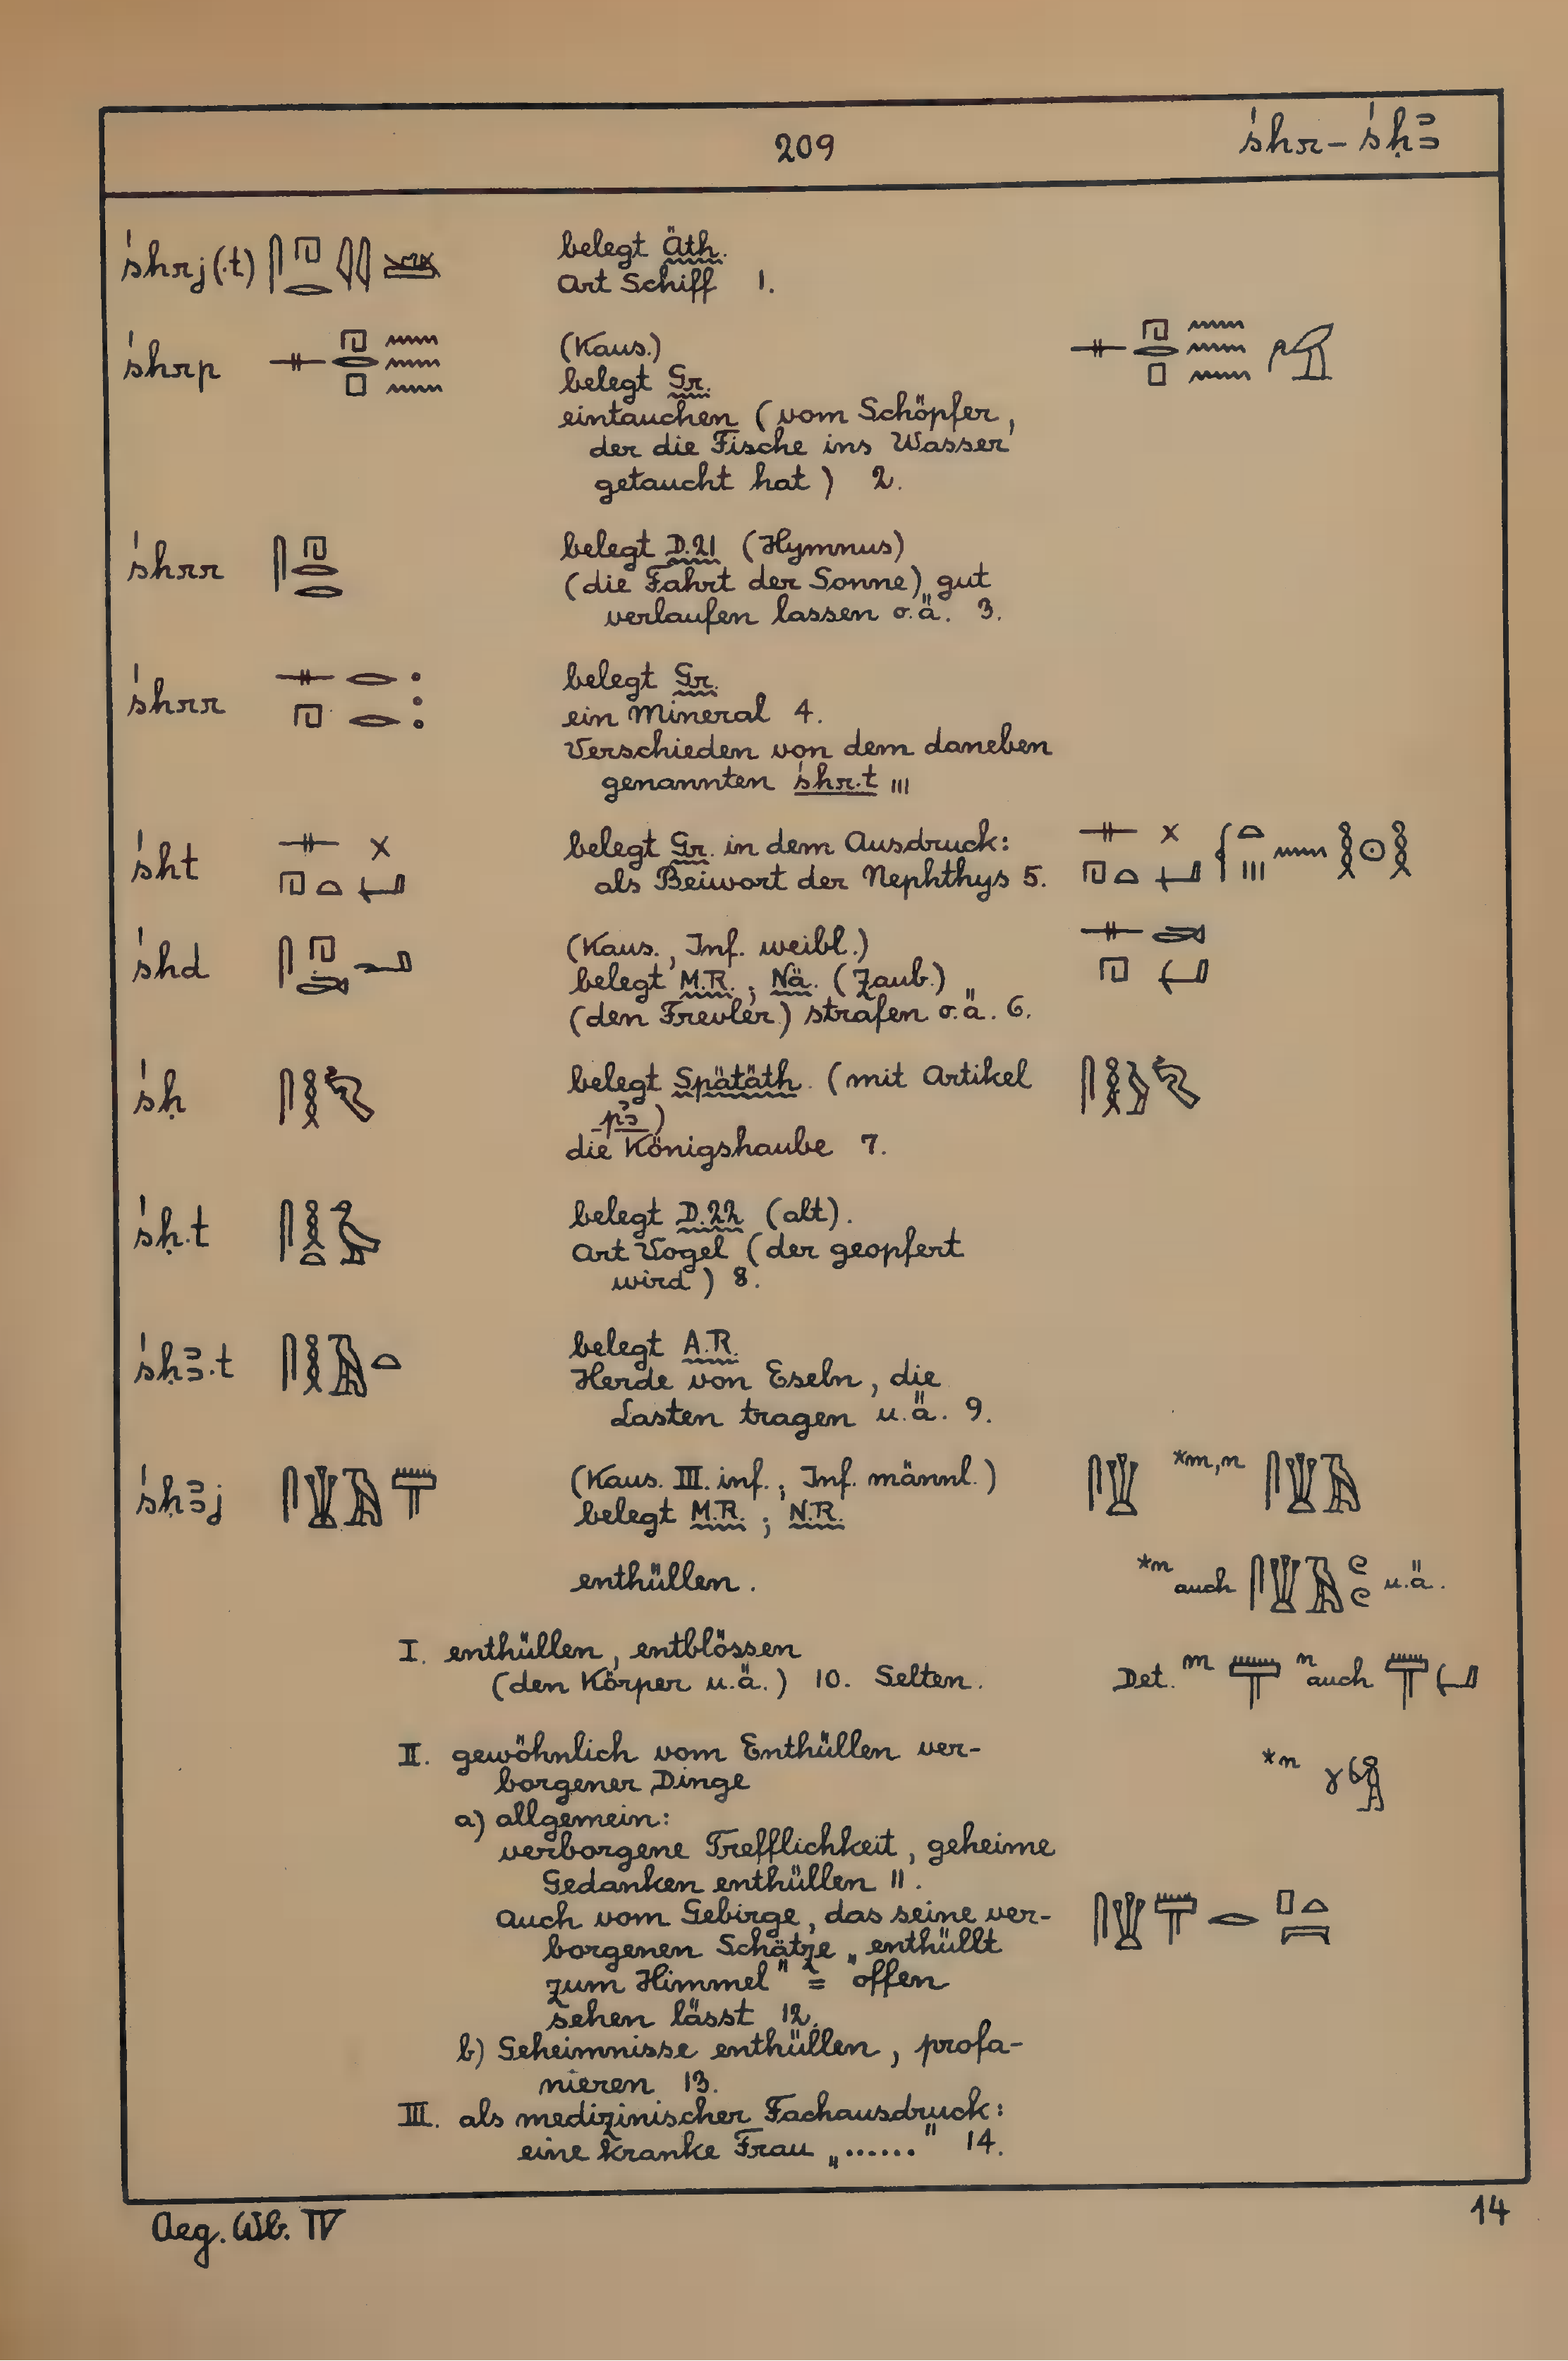 209
śhr – śḥꜣ
śhrj(.t) 𓋴𓉔𓂋𓇋𓇋 belegt Äth.
Art Schiff 1.
śhrp 𓊃𓉔𓂋𓊪𓈗 (Kaus.) 𓊃𓉔𓂋𓊪𓈗
belegt Gr.
eintauchen (vom Schöpfer,
der die Fische ins Wasser
getaucht hat) 2.
śhrr 𓋴𓉔𓂋𓂋 belegt D.21 (Hymnus)
(die Fahrt der Sonne) gut
verlaufen lassen o.ä. 3.
śhrr 𓊃𓉔𓂋𓂋 belegt Gr.
ein Mineral 4.
Verschieden von dem daneben
genannten śhr.t III
śht 𓊃𓉔𓏏𓏴𓂡 belegt Gr. in dem Ausdruck: 𓊃𓉔𓏏𓏴𓂡 𓏏𓏥 𓈖 𓎛𓇳𓎛
als Beiwort der Nephthys 5.
śhd 𓋴𓉔𓂧 (Kaus., Inf. weibl.) 𓊃𓉔𓂧𓂡
belegt M.R.; Nä. (Zaub.)
(den Frevler) strafen o.ä. 6.
śḥ 𓋴𓎛 belegt Spätäth. (mit Artikel 𓋴𓎛
pꜣ)
die Königshaube 7.
śḥ.t 𓋴𓎛𓏏𓅬 belegt D.22 (alt).
Art Vogel (der geopfert
wird) 8.
śḥꜣ.t 𓋴𓎛𓄿𓏏 belegt A.R.
Herde von Eseln, die
Lasten tragen u.ä. 9.
śḥꜣj 𓋴𓇉𓄿𓋳 (Kaus. III. inf.; Inf. männl.) 𓋴𓇉 *m,n 𓋴𓇉𓄿
belegt M.R.; N.R.
enthüllen. *n auch 𓋴𓇉𓄿𓏲𓏲 u.ä.
I. enthüllen, entblössen
(den Körper u.ä.) 10. Selten. Det. m 𓋳 n auch 𓋳𓂡
II. gewöhnlich vom Enthüllen ver- *n
borgener Dinge
a) allgemein:
verborgene Trefflichkeit, geheime
Gedanken enthüllen 11.
Auch vom Gebirge, das seine ver- 𓋴𓇉𓋳𓂋𓊪𓏏𓇯
borgenen Schätze „enthüllt
zum Himmel" = offen
sehen lässt 12.
b) Geheimnisse enthüllen, profa-
nieren 13.
III. als medizinischer Fachausdruck:
eine kranke Frau „......" 14.
Aeg. Wb. IV
14